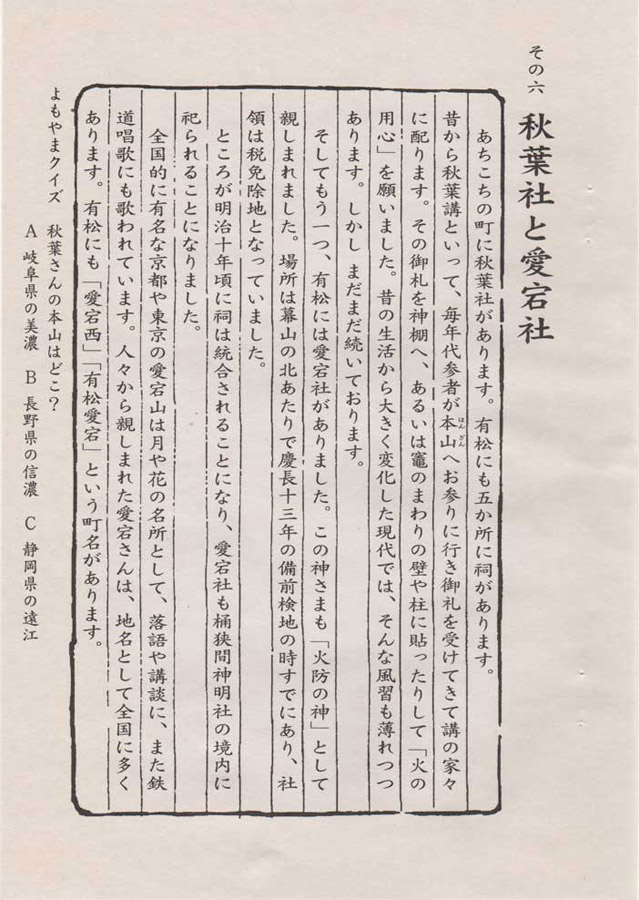 その六
秋葉社と愛宕社
あちこちの町に秋葉社があります。有松にも五か所に祠があります。
昔から秋葉講といって、毎年代参者が本山へお参りに行き御札を受けてきて講の家々
に配ります。その御札を神棚へ、あるいは竈のまわりの壁や柱に貼ったりして「火の
用心」を願いました。昔の生活から大きく変化した現代では、そんな風習も薄れつつ
あります。しかし まだまだ続いております。
そしてもう一つ、有松には愛宕社がありました。この神さまも「火防の神」として
親しまれました。場所は幕山の北あたりで慶長十三年の備前検地の時すでにあり、社
領は税免除地となっていました。
ところが明治十年頃に祠は統合されることになり、愛宕社も桶狭間神明社の境内に
祀られることになりました。
全国的に有名な京都や東京の愛宕山は月や花の名所として、落語や講談に、また鉄
道唱歌にも歌われています。人々から親しまれた愛宕さんは、地名として全国に多く
あります。有松にも「愛宕西」「有松愛宕」という町名があります。
よもやまクイズ 秋葉さんの本山はどこ?
A 岐阜県の美濃 B 長野県の信濃 C 静岡県の遠江